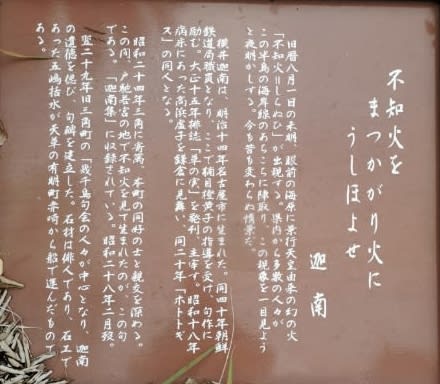 不知火を
まつかがり火に
うしほよせ
迦南
旧暦八月一日の未明、眼前の海原に景行天皇由来の幻の火
「不知火=しらぬひ」が出現する。県内から多数の人々が
この半島の海岸線のあちこちに陣取り、この現象を一目見よう
と夜明かしする。今も昔も変わらぬ情景だ。
横井迦南は、明治十四年名古屋市に生まれた。同四十年朝鮮
鉄道局職員となり、ここで楠目橙黄子の指導を受け、句作に
励む。大正十五年俳誌「草の実」を発刊、主宰す。昭和十八年
病床にあった高浜虚子を鎌倉に見舞い、同二十年「ホトトギ
ス」の同人となる。
昭和二十四年三角に寄寓、本町の同好の士と親交を深める。
この間、戸馳若宮の地で不知火を見て生まれたのが、この句
である。「迦南集」に収録されている。昭和二十八年二月歿。
翌二十九年旧三角町の「幾千鳥句会の人々」が中心となり、迦南
の遺徳を偲び、句碑を建立した。石材は俳人であり、石工で
あった五嶋枯水が天草の有明町赤崎から船で運んだもので
ある。